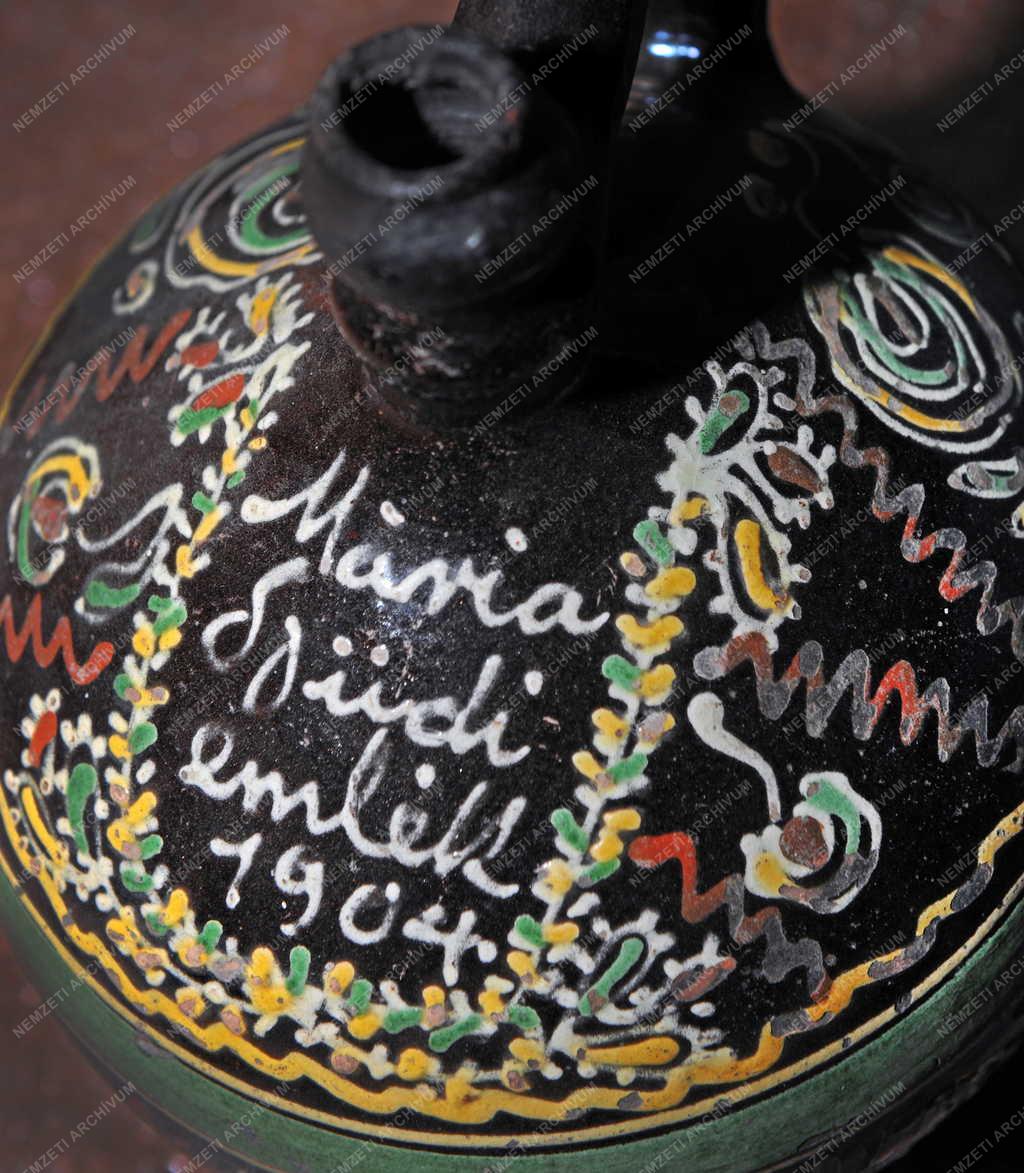 Mária
Gyüdi
emlék
1904
NEMZETI ARCHÍVUM